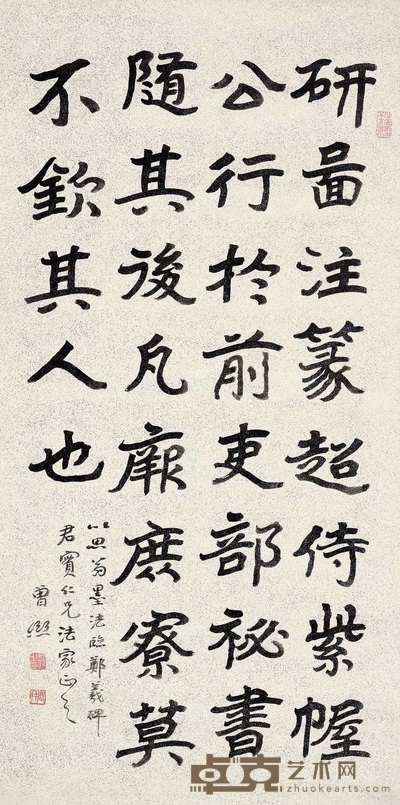 研啚注篆超侍紫幄
公行於前吏部祕書
隨其後凡厥庶寮莫
不欽其人也
以思翁墨法臨鄭羲碑
君仁兄法家正之
曾熙
卓克艺术网
zhuokearts.com